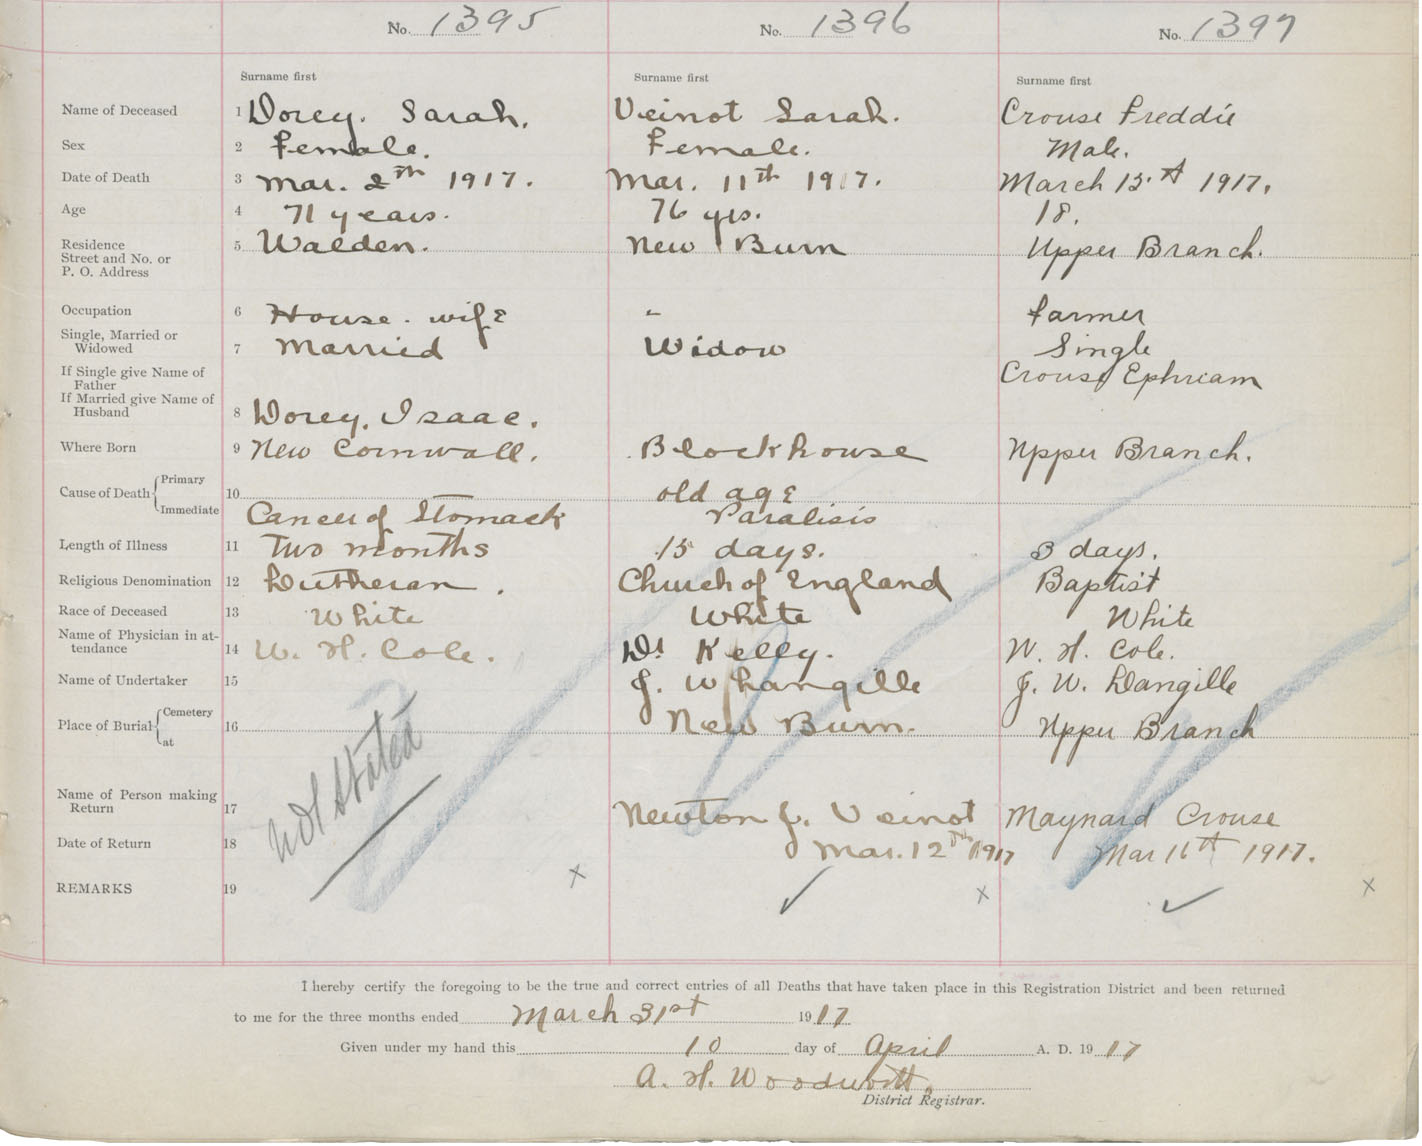 No. 1395 No. 1396 No. 1397
Surname first Surname first Surname first
Name of Deceased 1 Dorey. Sarah. Veinot Sarah. Crouse Freddie
Sex 2 Female. Female. Male.
Date of Death 3 Mar. 2th 1917. Mar. 11th 1917. March 15.st 1917.
Age 4 71 years. 76 yrs. 18.
Residence 5 Walden. New Burn Upper Branch.
Street and No. or
P. O. Address
Occupation 6 House. wife " Farmer
Single, Married or
Widowed 7 Married Widow Single
If Single give Name of Crouse Ephriam
Father
If Married give Name of
Husband 8 Dorey, Isaac.
Where Born 9 New Cornwall. Blockhouse Upper Branch.
Cause of Death Primary 10 old age
Immediate Cancer of Stomack Paralisis
Length of Illness 11 Two months 15 days. 3 days.
Religious Denomination 12 Lutheran. Church of England Baptist
Race of Deceased 13 White White White
Name of Physician in at-
tendance 14 W. H. Cole. Dr Kelly. W. H. Cole.
Name of Undertaker 15 J. W. Langille J. W. Langille
Place of Burial Cemetery 16 New Burn. Upper Branch
at
Not Stated
Name of Person making
Return 17 Newton J. Veinot Maynard Crouse
Date of Return 18 Mar. 12th 1917 Mar 16th 1917.
REMARKS 19 x ✓ x ✓ x
I hereby certify the foregoing to be the true and correct entries of all Deaths that have taken place in this Registration District and been returned
to me for the three months ended March 31st 1917
Given under my hand this 10 day of April A. D. 1917
A. H. Woodworth.
District Registrar.